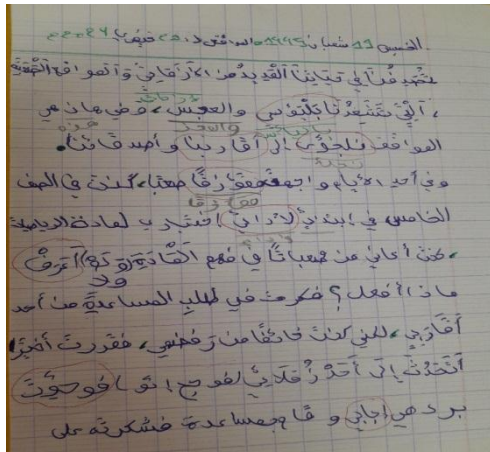 الخميس 11 شعبان 1445 الموافق لـ 22 فيفري 2024
تصدفنا في حياتنا العديد من الأزمات والمواقف الصعبة
، التي تشعرنا بالبؤس والعجس، وفي هاذ هي
المواقف نلجؤ إلى أقاربنا وأصدقائنا.
وفي أحد الأيام واجهة صعبا، كنت في الصف
الخامس في إبتدائي اختبار لمادة الرياضيات
، كنت أعاني من صعباتا في فهم المادة أعرف
ماذا أفعل؟ فكرت في طلب المساعدة من أحد
أقاربي، لكني كنت خائفا من رفضهم، فقررت أخيرا
أتحدث إلى أحد زملائي فوجئت
برد هي إجابي و قام بمساعدة فشكرته على